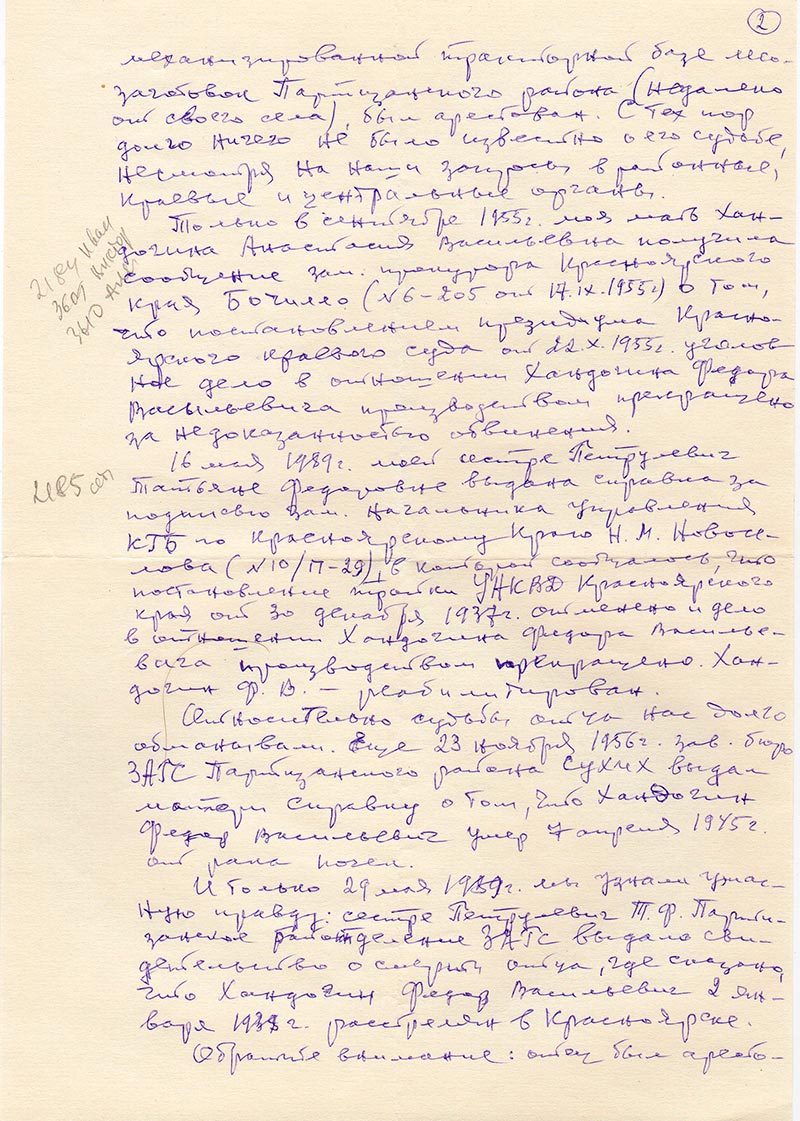 2
механизированной тракторной базе лесо-
заготовок Партизанского района (недалеко
от своего села), был арестован. С тех пор
долго ничего не было известно о его судьбе,
несмотря на наши запросы в районные,
краевые и центральные органы.
Только в сентябре 1955г. моя мать Хан-
догина Анастасия Васильевна получила
сообщение зам. прокурора Красноярского
края Бочилло (N6-205 от 17.IX.1955г.) о том,
что постановлением президиума Красно-
ярского краевого суда от 22.X.1955г. уголов
ное дело в отношении Хандогина Федора
Васильевича производством прекращено
за недоказанностью обвинения.
16 мая 1989г. моей сестре Петрулевич
Татьяне Федоровне выдана справка за
подписью зам. начальника Управления
КГБ по Красноярскому краю Н.М. Новосе-
лова (N10/П-29), в которой сообщалось, что
постановление тройки УНКВД Красноярского
края от 30 декабря 1937г. отменено и дело
в отношении Хандогина Федора Василье-
вича производством прекращено. Хан-
догин Ф.В. – реабилитирован.
Относительно судьбы отца нас долго
обманывали. Еще 23 ноября 1956г. зав. бюро
ЗАГС Партизанского района Сухих выдал
матери справку о том, что Хандогин
Федор Васильевич умер 7 апреля 1945г.
от рака почек.
И только 29 мая 1989г. мы узнали ужас-
ную правду: сестре Петрулевич Т.Ф. Парти-
занское райотделение ЗАГС выдало сви-
детельство о смерти отца, где сказано,
что Хандогин Федор Васильевич 2 ян-
варя 1938г. расстрелян в Красноярске.
Обратите внимание: отец был аресто-
2184 Иван
3609 Виктор
3610
2185